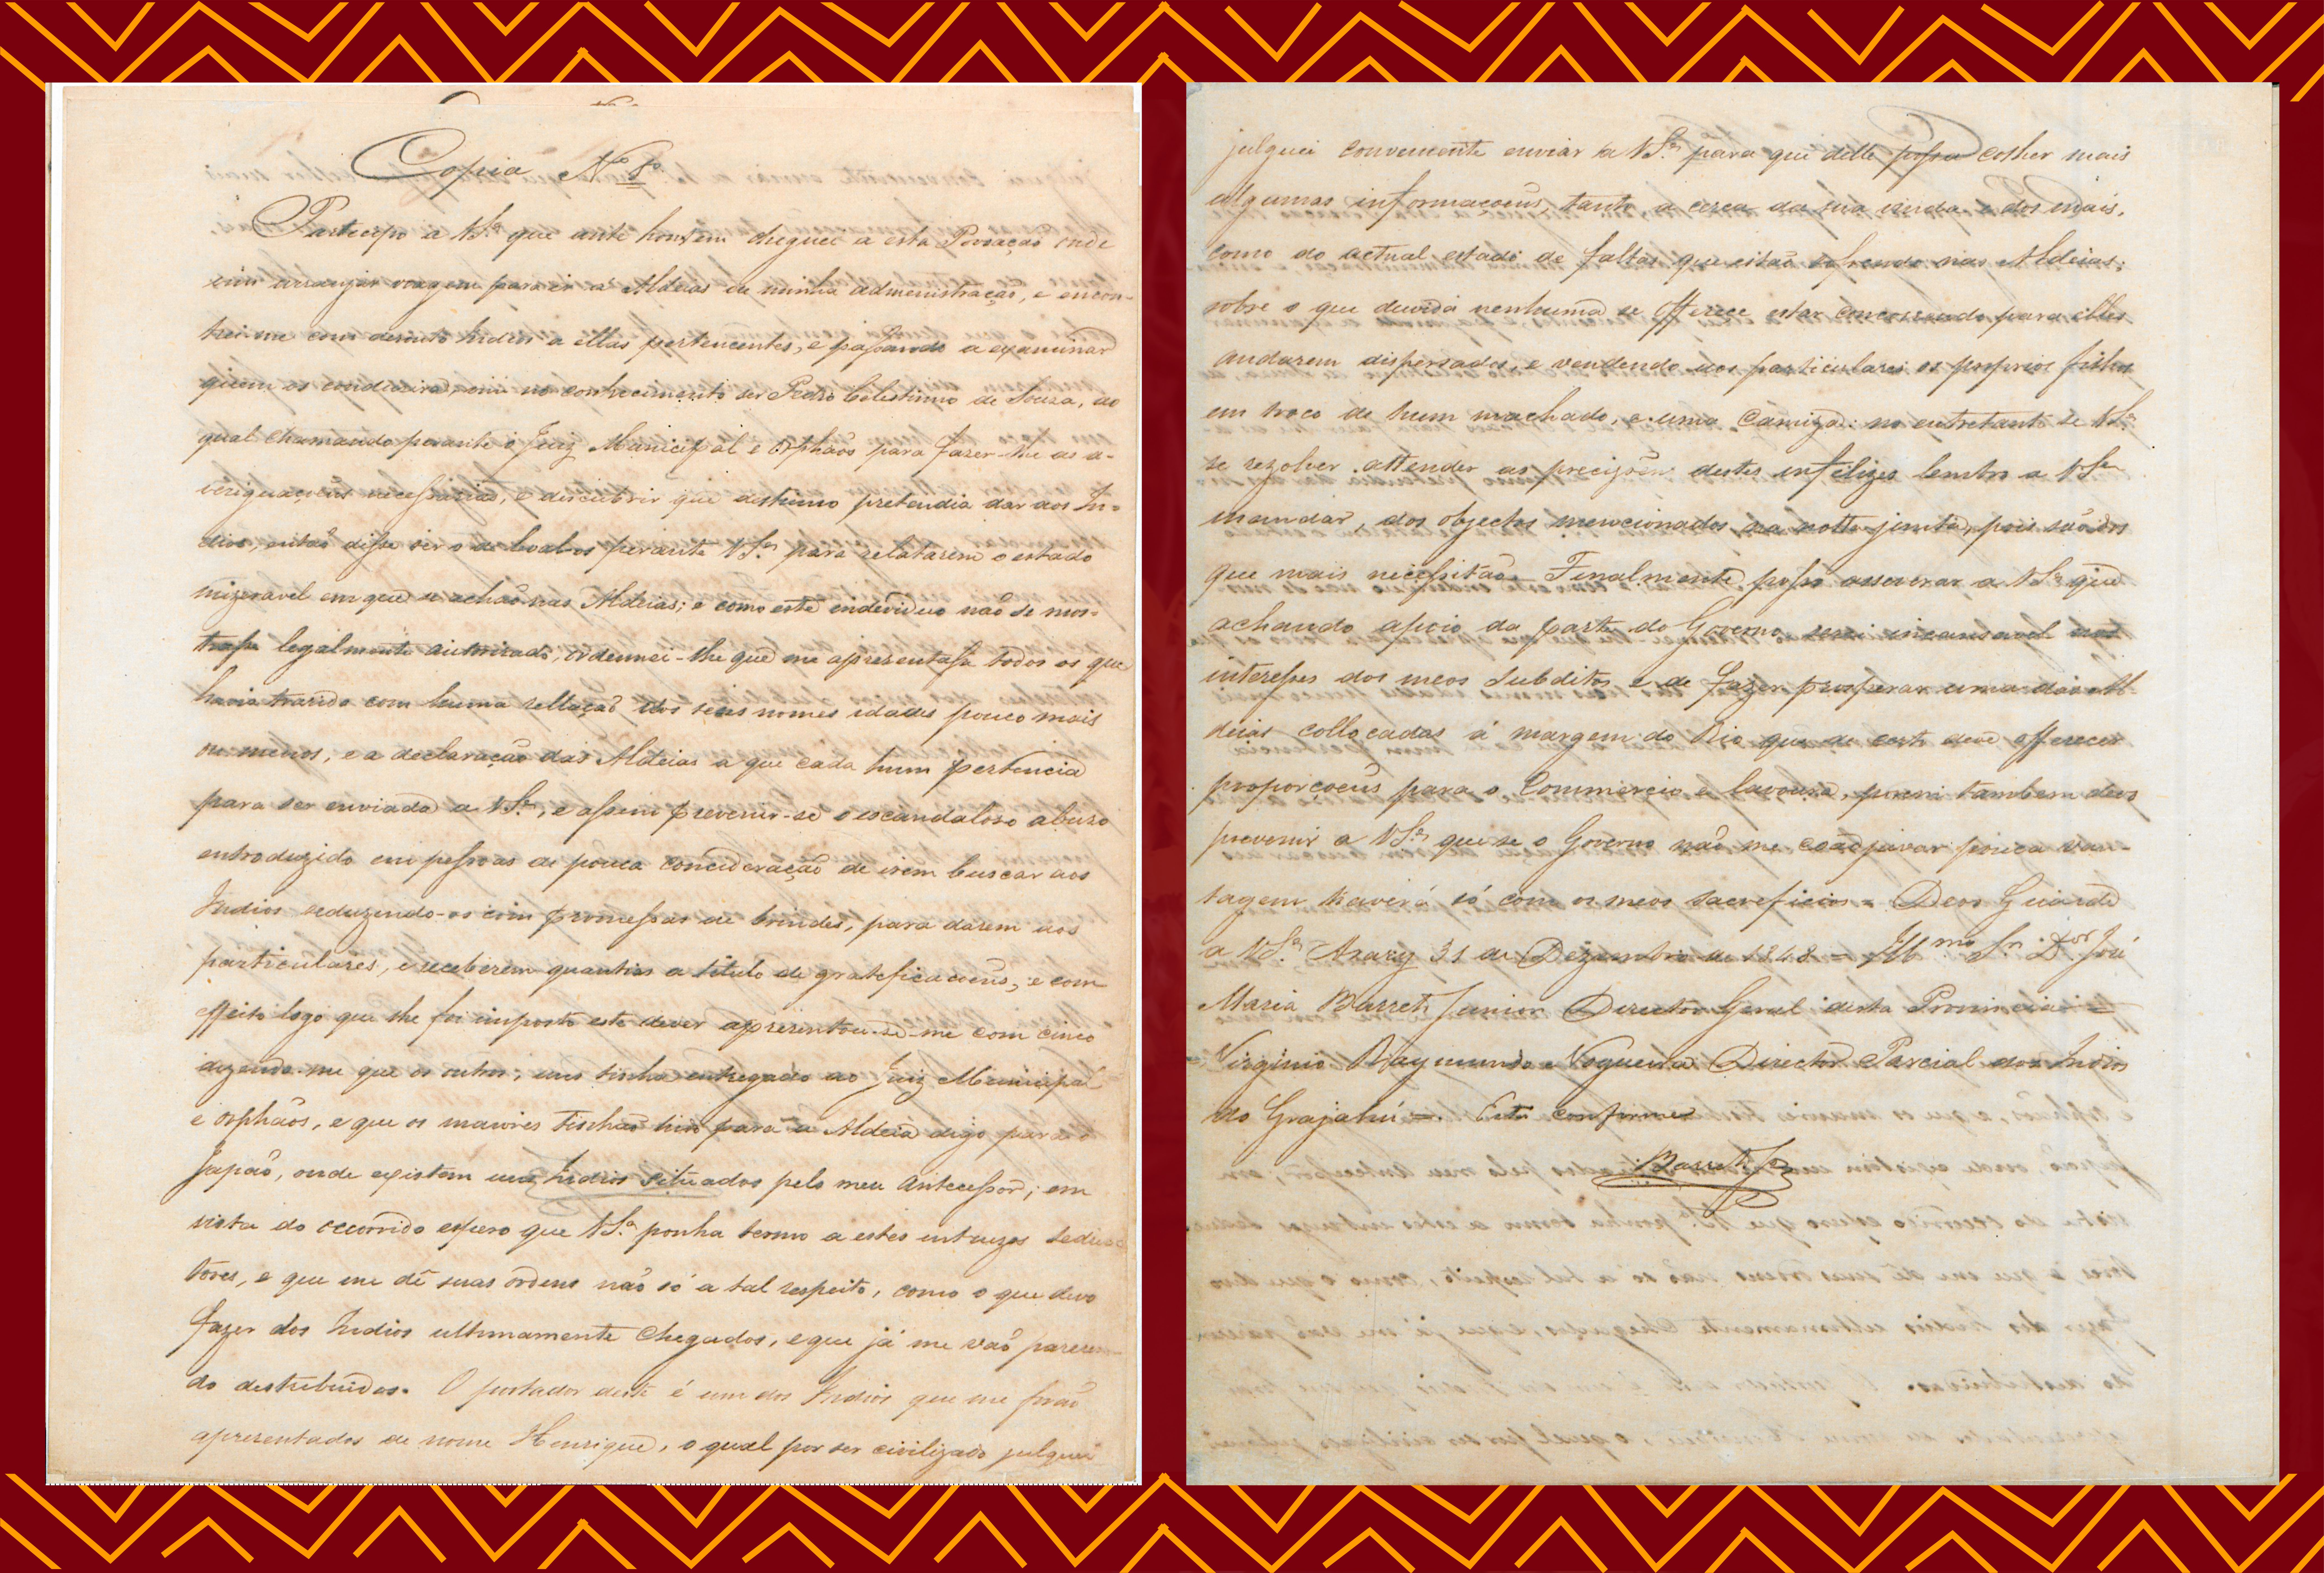 Copia N.º 8º
Particípo a VSª que ante hontem cheguei a esta Povoação onde
vim arranjar viagem para ir a Aldeias de minha administração, e encon-
trei-me com desoito Indios a ellas pertencentes, e passando a examinar
quem os condusira, vim no conhecimento ser Pedro Celestinno de Souza, ao
qual chamando perante o Juiz Municipal e Orphãos para fazer-lhe as a-
veriguaçoens necessarias, e discubrir que destinno pretendia dar aos In-
dios, então disse ser o de leval-os perante VSª para relatarem o estado
mizeravel em que se achão nas Aldeias; e como este endeviduo não se mos-
trasse legalmente autorisado, ordennei-lhe que me apresentasse todos os que
havia trasido com huma rellação dos seus nomes idades pouco mais
ou menos, e a declaração das Aldeias a que cada hum pertencia
para ser enviada a VSª, e assim prevenir-se o escandaloso abuzo
entroduzido em pessoas de pouca concideração de irem buscar aos
Indios seduzindo-os com promessas de brindes, para darem aos
particulares, e receberem quantias a titulo de gratificacoens, e com
effeito logo que lhe foi imposto este dever apresentou-se-me com cinco
dizendo-me que os outros, uns tinha entregado ao Juiz Municipal
e Orphãos, e que os maiores tinhão hido para a Aldeia digo para o
Japão, onde existem uns Indios situados pelo meu Antecessor; em
vista do occorrido espero que VSª ponha termo a estes intruzos seduc-
tores, e que me dê suas ordens não só a tal respeito, como o que devo
fazer dos Indios ultimamente chegados, e que já me vão parecen-
do destribuidos. O portador deste é um dos Indios que me forão
apresentados de nome Henrique, o qual por ser civilizado julguei
julguei conveniente enviar a VSª para que delle possa colher mais
algumas informaçoens, tanto a cerca da sua vinda e dos mais,
como do actual estado de faltas que estão sofrendo nas Aldeias;
sobre o que duvida nenhuma se offerece estar concorrendo para elles
andarem dispersados, e vendendo aos particulares os proprios filhos
em troco de hum machado, e uma camiza: no entretanto se VSª
se rezolver attender as precizões destes infelizes lembro a VSª
mandar, dos objectos mencionados na notta junta, pois são dos
que mais necessitão. Finalmente posso asseverar a VSª que
achando apoio da parte do Governo serei incansavel nos
interesses dos meos subditos e de fazer prosperar uma das Al-
deias collocadas á margem do Rio que de certo deve offerecer
proporçoens para o Commercio e lavoura, porem tambem devo
prevenir a VSª que se o Governo não me coadjuvar pouca van-
tagem haverá só com os meos sacreficios = Deos Guarde
a VSª Arary 31 de Dezembro de 1848 = Illmo Sr. Dor José
Maria Barreto Junior Director Geral desta Provincia =
Virginio Raymundo Nogueira Director Parcial dos Indios
do Grajahú =. Está conforme
Barreto Jor